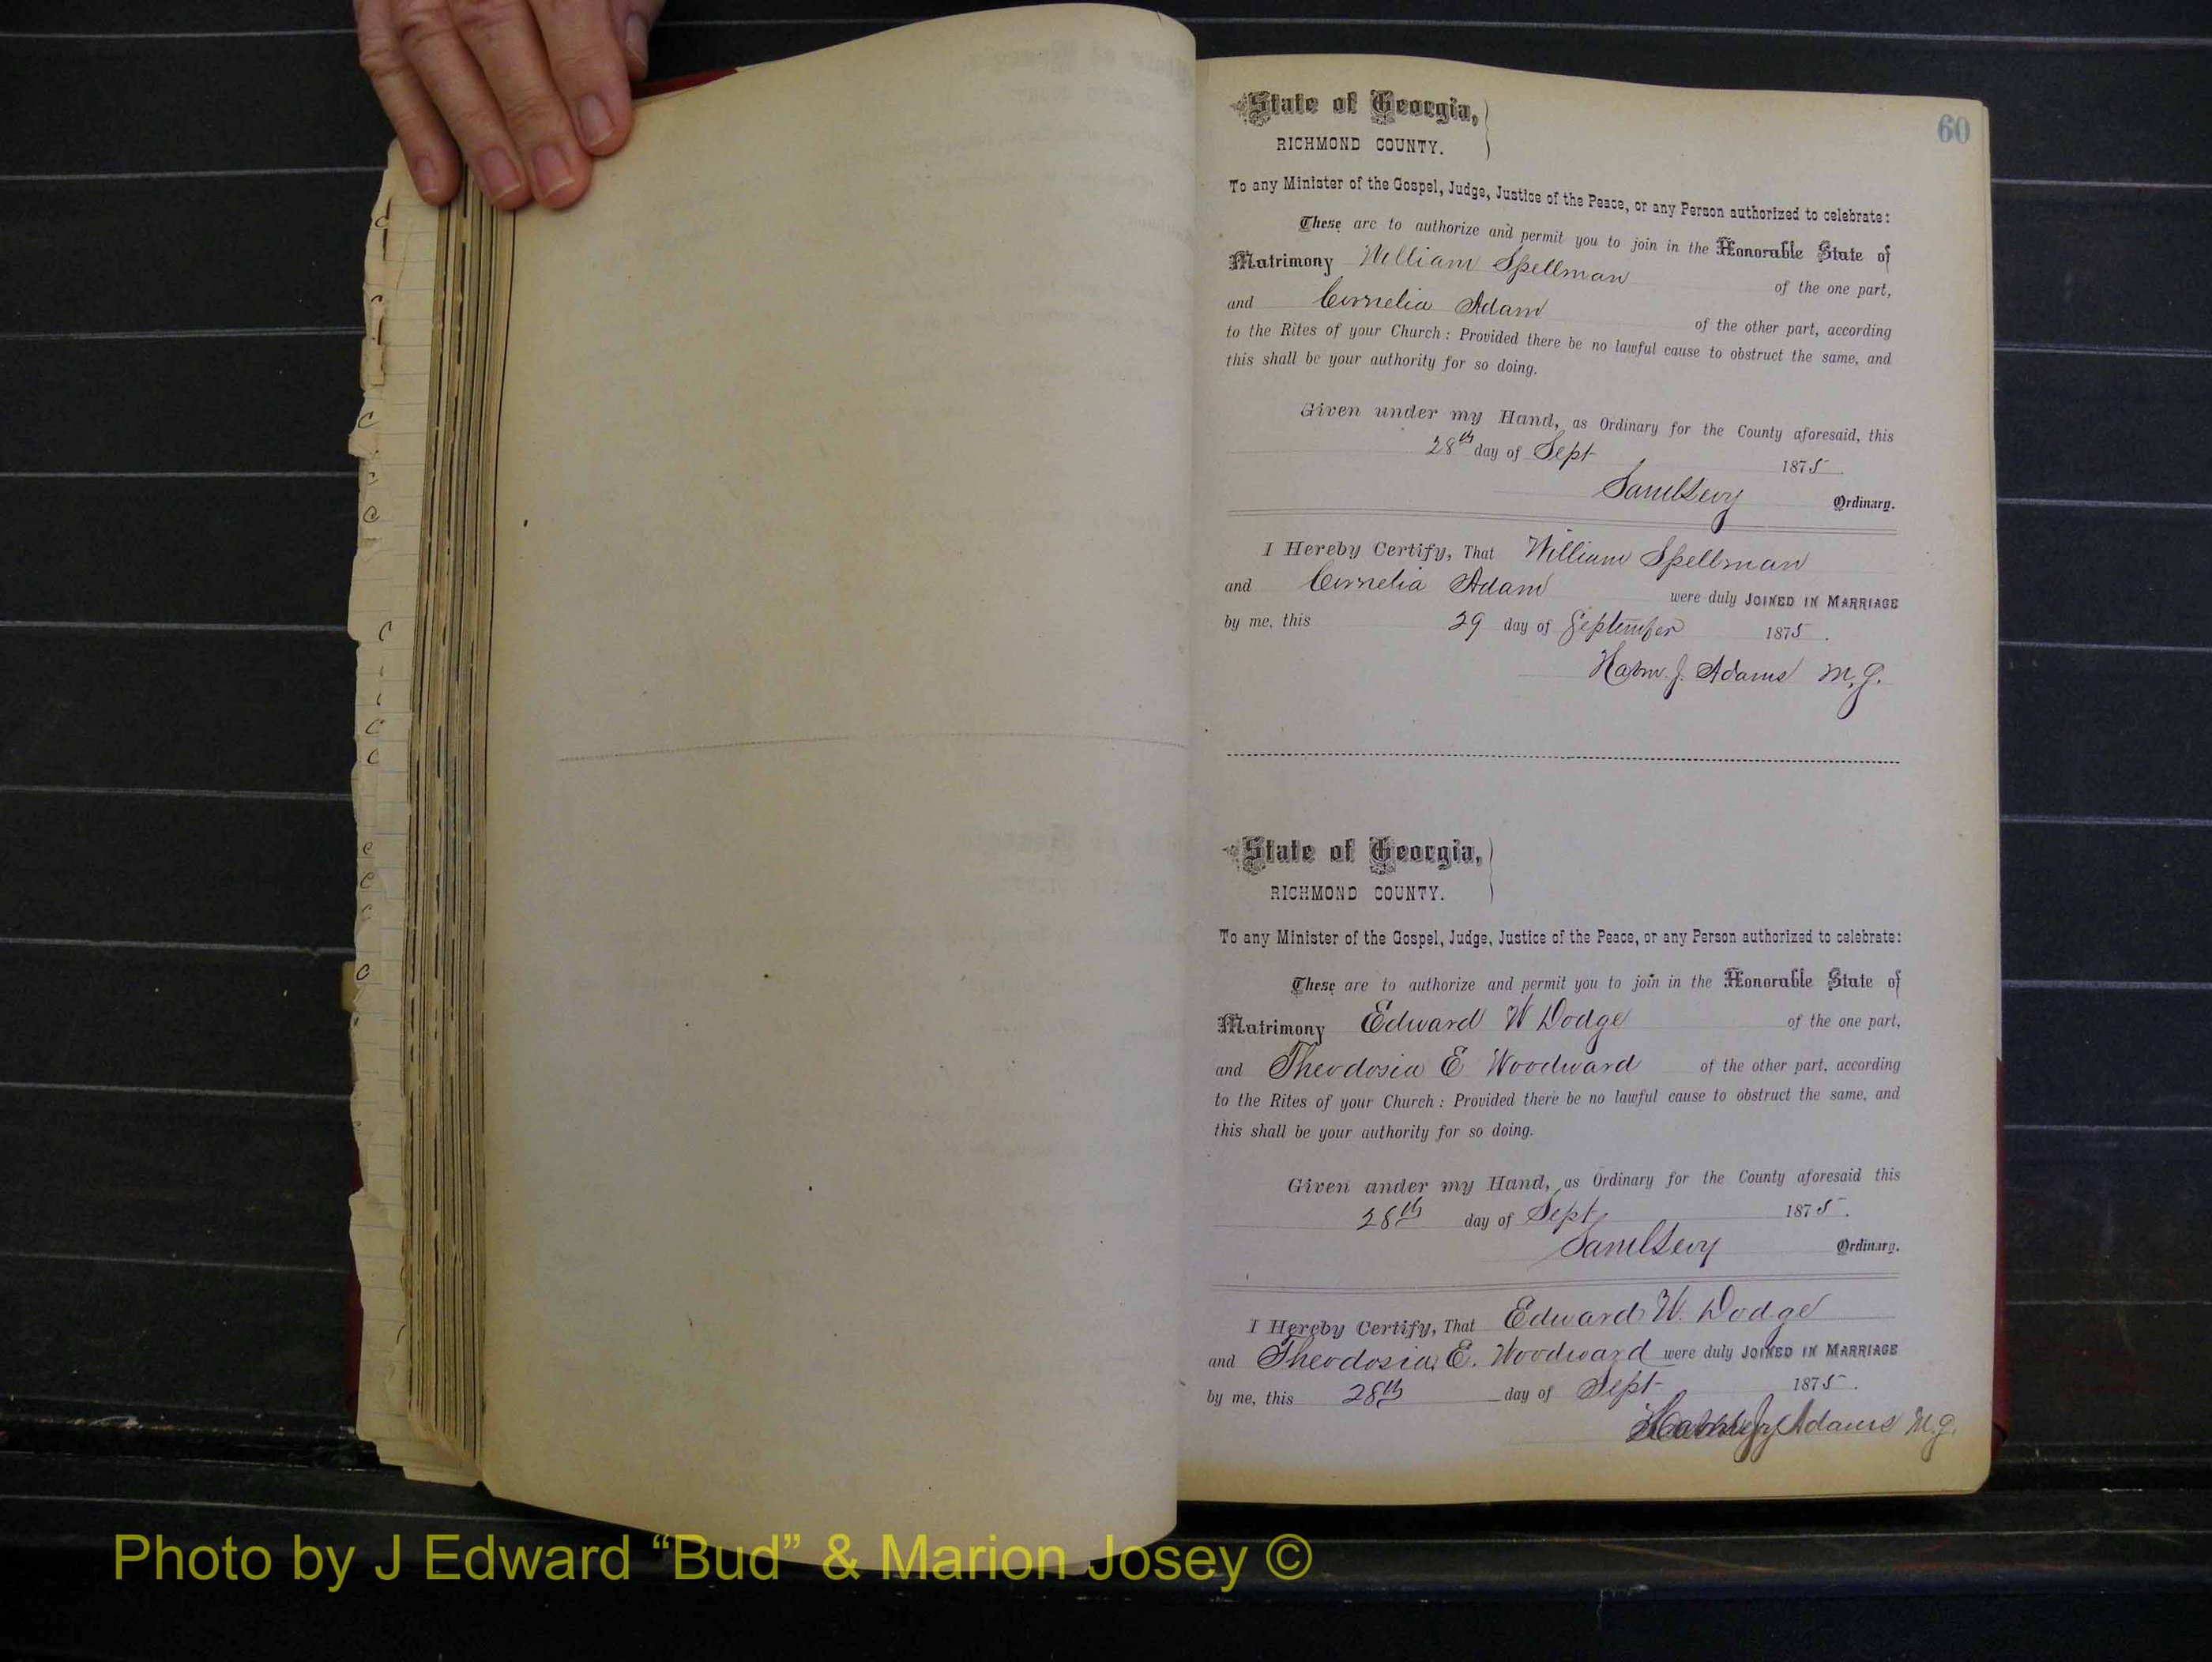 60
State of Georgia,
RICHMOND COUNTY.
To any Minister of the Gospel, Judge, Justice of the Peace, or any Person authorized to celebrate:
These are to authorize and permit you to join in the Honorable State of
Matrimony William Spellman of the one part,
and Cornelia Adam of the other part, according
to the Rites of your Church: Provided there be no lawful cause to obstruct the same, and
this shall be your authority for so doing.
Given under my Hand, as Ordinary for the County aforesaid, this
28th day of Sept 1875.
Saml Levy Ordinary.
I Hereby Certify, That William Spellman
and Cornelia Adam were duly JOINED IN MARRIAGE
by me, this 29 day of September 1875.
J. Adams M.G.
State of Georgia,
RICHMOND COUNTY.
To any Minister of the Gospel, Judge, Justice of the Peace, or any Person authorized to celebrate:
These are to authorize and permit you to join in the Honorable State of
Matrimony Edward W Dodge of the one part,
and Theodosia E Woodward of the other part, according
to the Rites of your Church: Provided there be no lawful cause to obstruct the same, and
this shall be your authority for so doing.
Given under my Hand, as Ordinary for the County aforesaid this
28th day of Sept 1875.
Saml Levy Ordinary.
I Hereby Certify, That Edward W. Dodge
and Theodosia E. Woodward were duly JOINED IN MARRIAGE
by me, this 28th day of Sept 1875.
Adams M.G.
Photo by J Edward “Bud” & Marion Josey ©